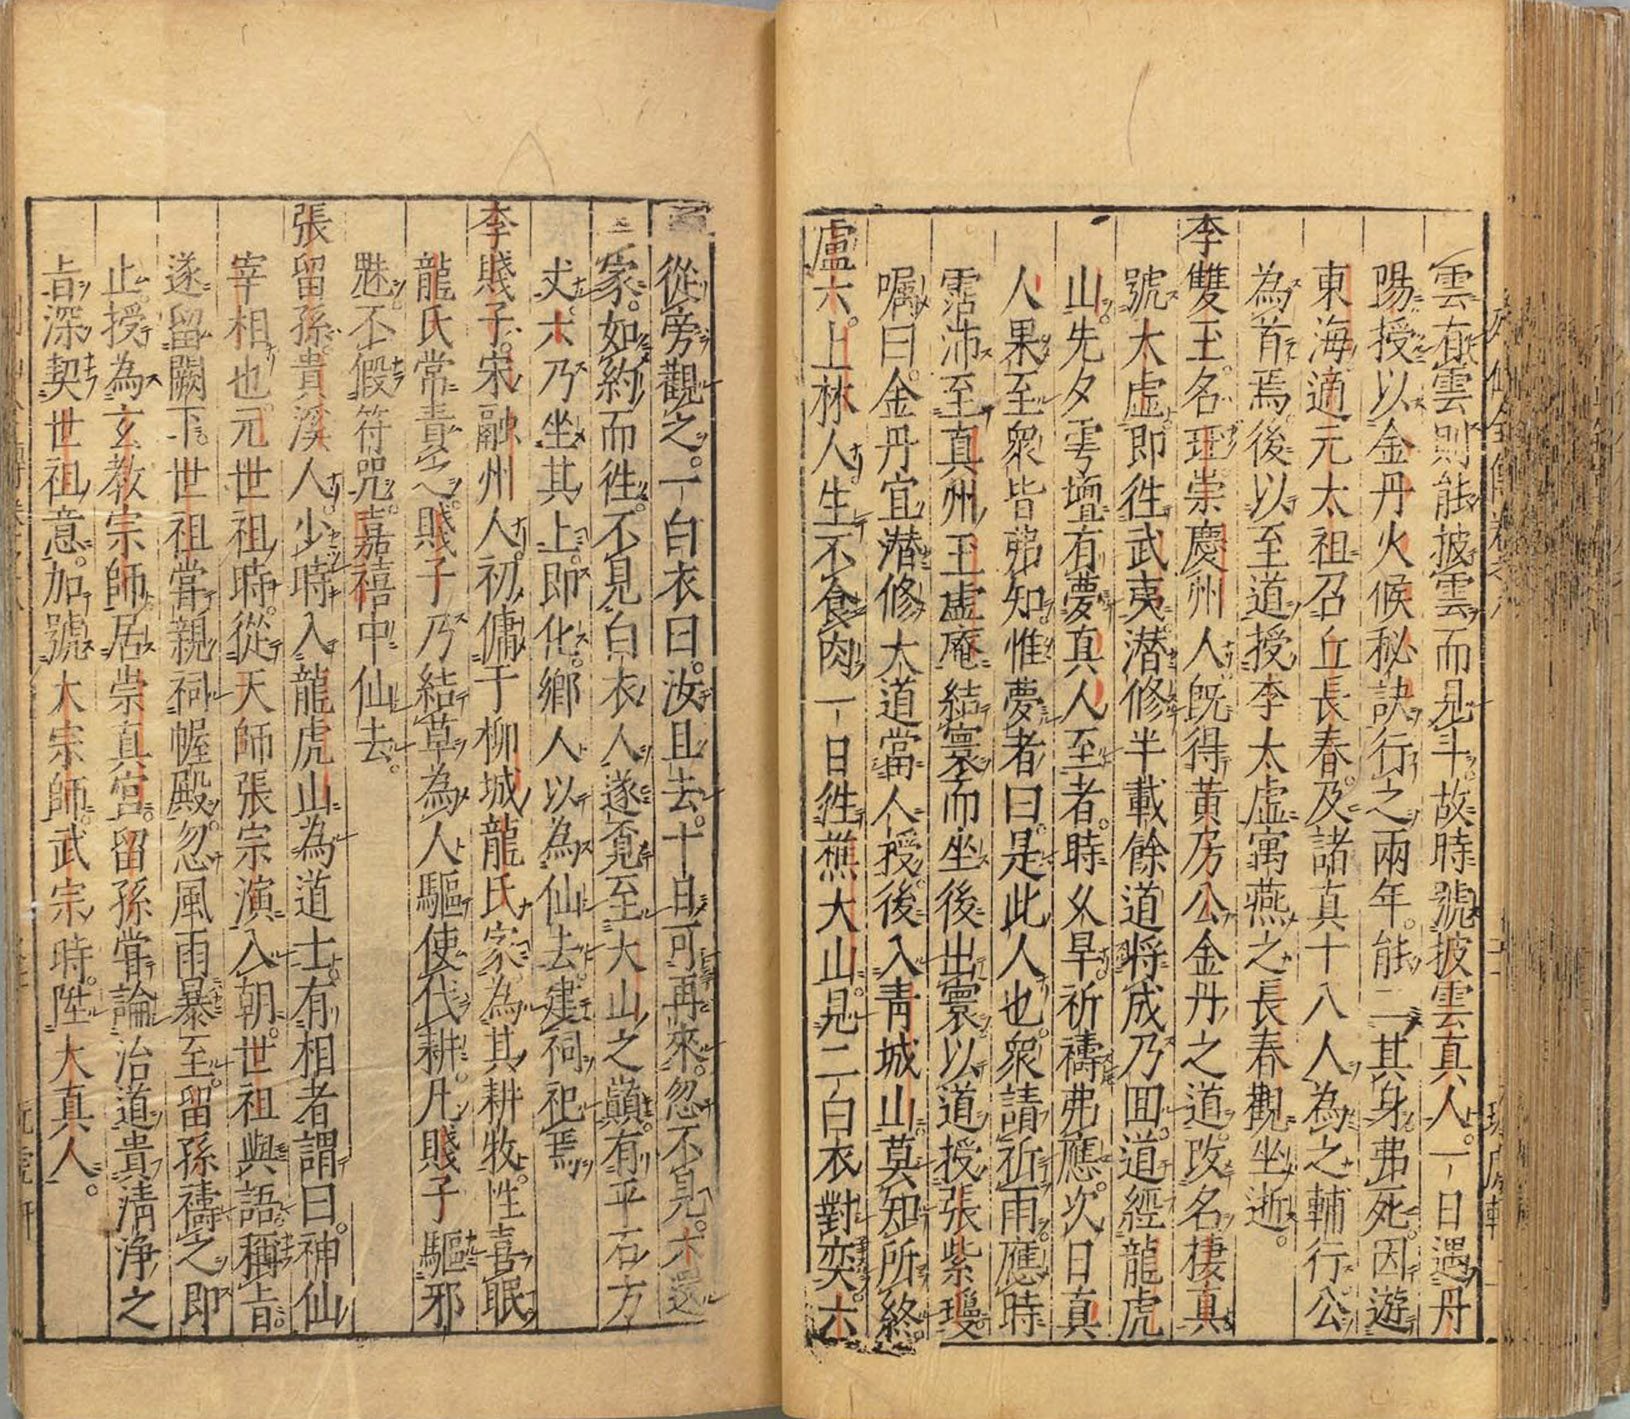 雲有雲則能披雲而見斗故時號披雲真人一日遇丹
陽授以金丹火候秘訣行之兩年能二其身弗死因遊
東海適元太祖召丘長春及諸真十八人為之輔行公
為首焉後以至道授李太虛寓燕之長春觀坐逝
李雙玉名玨崇慶州人既得黄房公金丹之道改名棲真
號太虛即徃武夷潜修半載餘道将成乃囬道經龍虎
山先夕雩壇有夢真人至者時久旱祈禱弗應次日真
人果至衆皆弗知惟夢者曰是此人也衆請祈雨應時
霑沛至真州玉虛庵結寰而坐後出寰以道授張紫瓊
嘱曰金丹宜潜修大道當人授後入青城山莫知所終
盧六上林人生不食肉一日徃樵大山見二白衣對奕六
從旁觀之一白衣曰汝且去十日可再來忽不見六還
家如約而徃不見白衣人遂覔至大山之巔有平石方
丈六乃坐其上即化鄉人以為仙去建祠祀焉
李賤子宋融州人初傭于柳城龍氏家為其耕牧性喜眠
龍氏常責之賤子乃結草為人驅使代耕凡賤子驅邪
魅不假符咒嘉禧中仙去
張留孫貴溪人少時入龍虎山為道士有相者謂曰神仙
宰相也元世祖時從天師張宗演入朝世祖與語稱旨
遂留闕下世祖嘗親祠幄殿忽風雨暴至留孫禱之即
止授為玄教宗師居崇真宫留孫嘗論治道貴清浄之
旨深契世祖意加號大宗師武宗時陞大真人